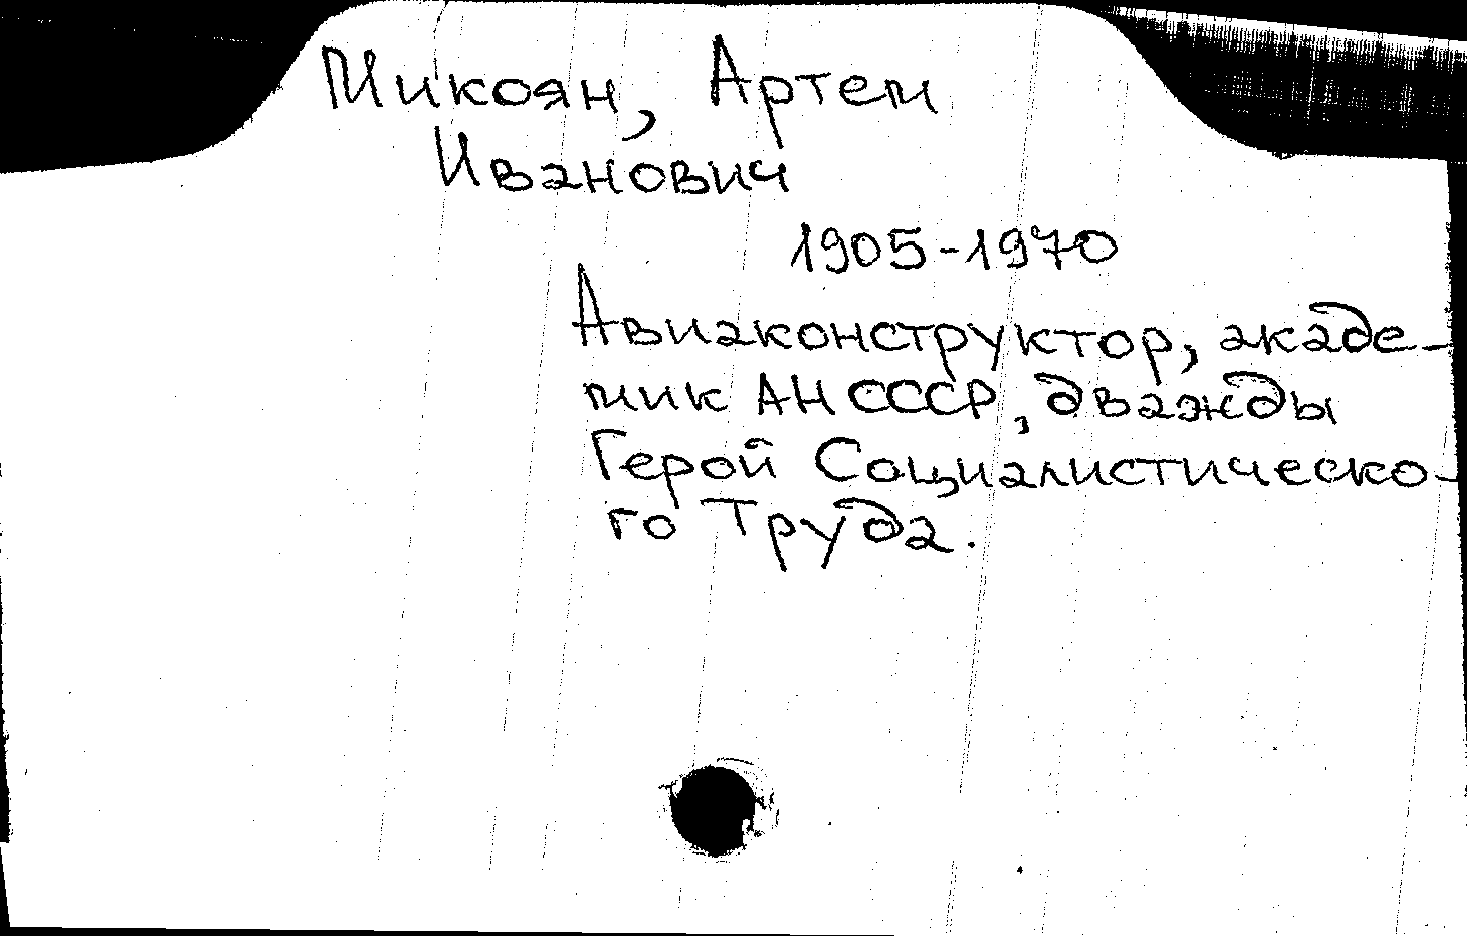 Микоян, Артем
Иванович
1905-1970
Авиаконструктор, акаде-
мик АН СССР, дважды
Герой Социалистическо-
го Труда.